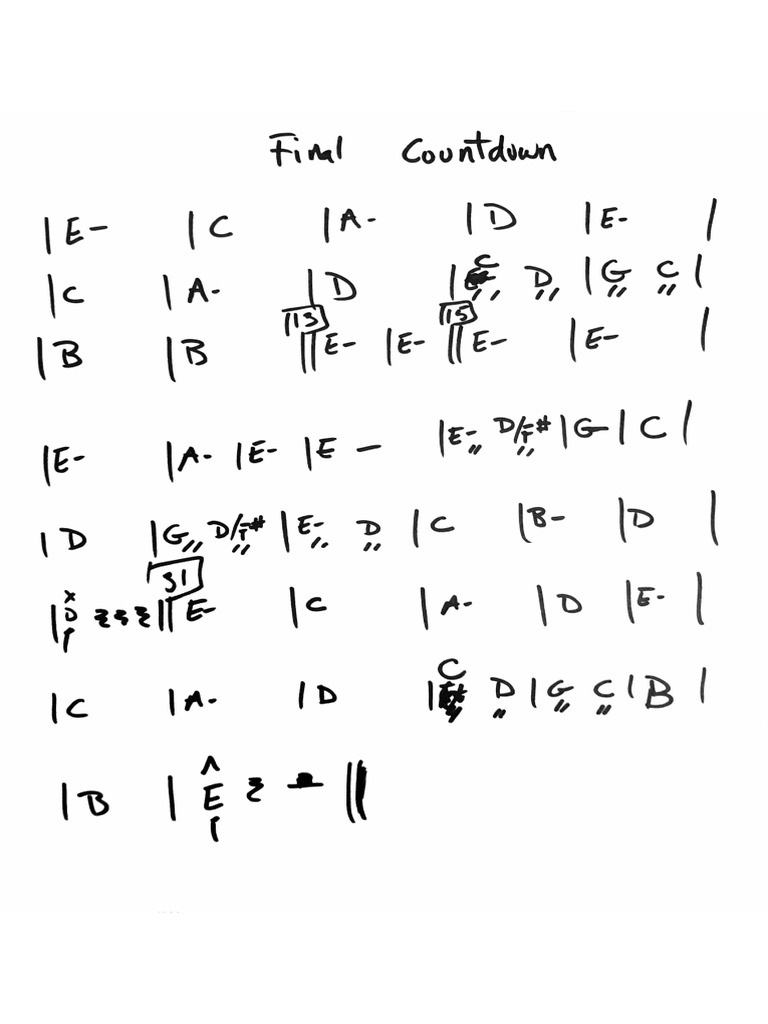 Final Countdown
| E- | C | A- | D | E- |
| C | A- | D | C D | G C |
13 15
| B | B || E- | E- || E- | E- |
| E- | A- | E- | E - | E- D/F# | G | C |
| D | G D/F# | E- D | C | B- | D |
31
| D || E- | C | A- | D | E- |
| C | A- | D | C D | G C | B |
| B | E ||